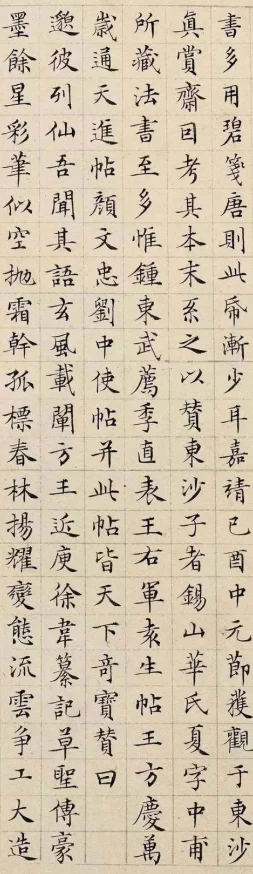 書多用碧箋唐則此帋漸少耳嘉靖己酉中元節獲觀于東沙
真賞齋因考其本末系之以贊東沙子者錫山華氏夏字中甫
所藏法書至多惟鍾東武薦季直表王右軍袁生帖王方慶萬
歲通天進帖顏文忠劉中使帖并此帖皆天下奇寶贊曰
邈彼列仙吾聞其語玄風載闡方王近庾徐韋纂記草聖傳豪
墨餘星彩筆似空拋霜幹孤標春林揚耀變態流雲争工大造